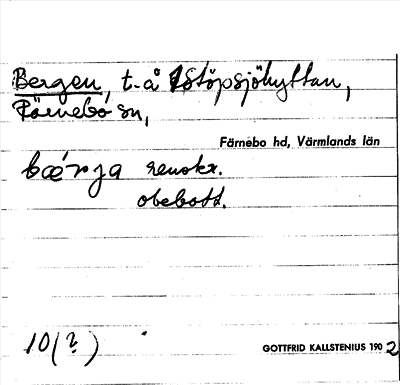 Bergen, t. å Stöpsjöhyttan,
Färnebo sn,
Färnebo hd, Värmlands län
bæ´rja renskr.
obebott.
10(?)
GOTTFRID KALLSTENIUS 1902